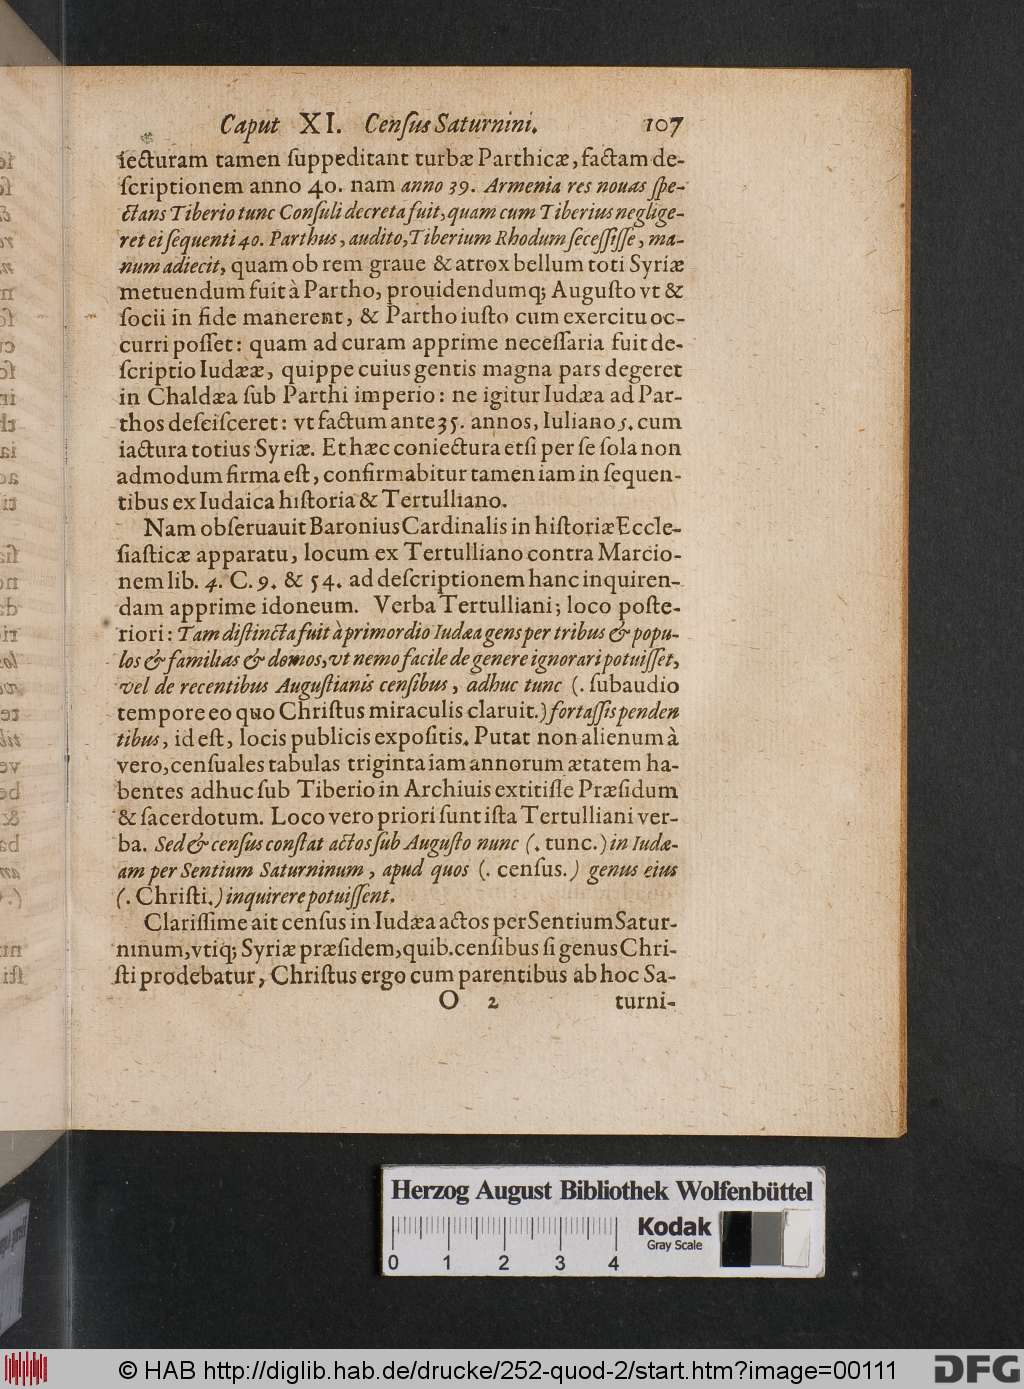 Caput XI. Censſus Saturnini. 107
iecturam tamen ſuppeditant turbæ Parthicæ, factam de-
ſcriptionem anno 40. nam anno 39. Armenia res nouas ſpe-
ctans Tiberio tunc Conſuli decreta fuit, quam cum Tiberius neglige-
ret ei ſequenti 40. Parthus, audito, Tiberium Rhodum ſeceſſiſſe, ma-
num adiecit, quam ob rem graue & atrox bellum toti Syriæ
metuendum fuit à Partho, prouidendumq; Auguſto vt &
ſocii in fide manerent, & Partho iuſto cum exercitu oc-
curri poſſet: quam ad curam apprime neceſſaria fuit de-
ſcriptio Iudææ, quippe cuius gentis magna pars degeret
in Chaldæa ſub Parthi imperio: ne igitur Iudæa ad Par-
thos deſciſceret: vt factum ante 35. annos, Iuliano 5. cum
iactura totius Syriæ. Et hæc coniectura etſi per ſe ſola non
admodum firma eſt, confirmabitur tamen iam in ſequen-
tibus ex Iudaica hiſtoria & Tertulliano.
Nam obſeruauit Baronius Cardinalis in hiſtoriæ Eccle-
ſiaſticæ apparatu, locum ex Tertulliano contra Marcio-
nem lib. 4. C. 9. & 54. ad deſcriptionem hanc inquiren-
dam apprime idoneum. Verba Tertulliani; loco poſte-
riori: Tam diſtincta fuit à primordio Iudæa gens per tribus & popu-
los & familias & domos, vt nemo facile de genere ignorari potuiſſet,
vel de recentibus Auguſtianis cenſibus, adhuc tunc (. ſubaudio
tempore eo quo Chriſtus miraculis claruit.) fortaſſis penden
tibus, id eſt, locis publicis expoſitis. Putat non alienum à
vero, cenſuales tabulas triginta iam annorum ætatem ha-
bentes adhuc ſub Tiberio in Archiuis extitiſſe Præſidum
& ſacerdotum. Loco vero priori ſunt iſta Tertulliani ver-
ba. Sed & cenſus conſtat actos ſub Auguſto nunc (. tunc.) in Iudæ-
am per Sentium Saturninum, apud quos (. cenſus.) genus eius
(. Chriſti.) inquirere potuiſſent.
Clariſſime ait cenſus in Iudæa actos per Sentium Satur-
ninum, vtiq; Syriæ præſidem, quib. cenſibus ſi genus Chri-
ſti prodebatur, Chriſtus ergo cum parentibus ab hoc Sa-
O 2 turni-
Herzog August Bibliothek Wolfenbüttel
Kodak
Gray Scale
0 1 2 3 4
© HAB http://diglib.hab.de/drucke/252-quod-2/start.htm?image=00111
DFG